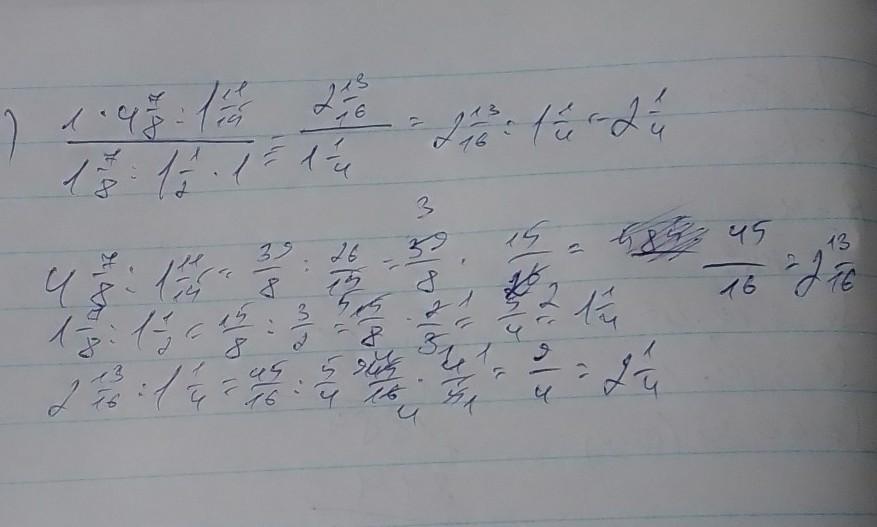 ) (1 · 4 7/8 : 1 11/15) / (1 7/8 : 1 1/2 · 1) = (2 13/16) / (1 1/4) = 2 13/16 : 1 1/4 = 2 1/4
4 7/8 : 1 11/15 = 39/8 : 26/15 = 39/8 · 15/26 = 45/16 = 2 13/16
1 7/8 : 1 1/2 = 15/8 : 3/2 = 15/8 · 2/3 = 5/4 = 1 1/4
2 13/16 : 1 1/4 = 45/16 : 5/4 45/16 · 4/5 = 9/4 = 2 1/4